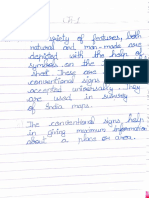 Lh-1
variety of features, both
natural and man-made are
depicted with the help of
symbols on the
sheet These are
conventional signs
accepted universally. They
are used in survey
of India maps.
The conventional signs help
in giving maximum information
about a place or area.